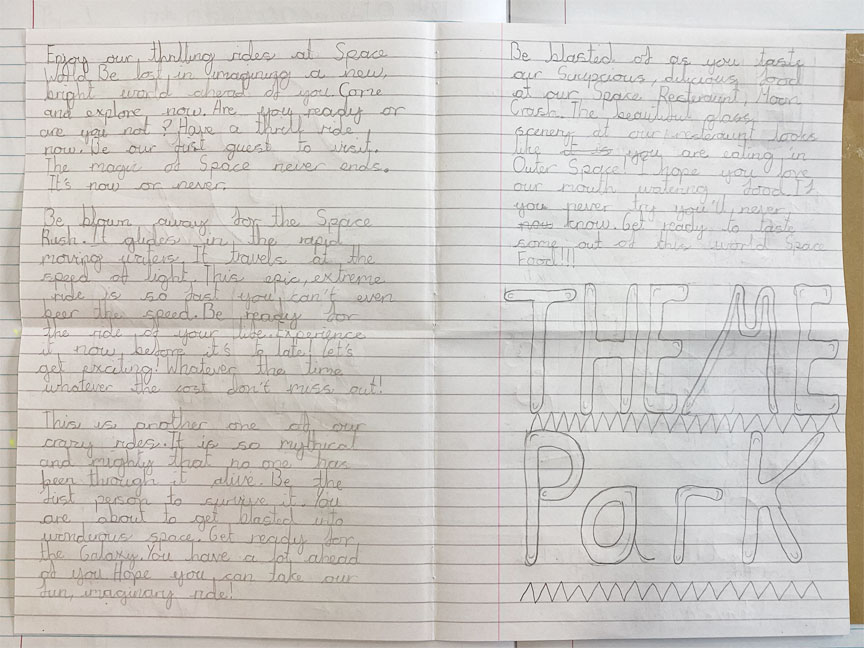 Enjoy our thrilling rides at Space
World. Be lost in imagining a new,
bright world ahead of you. Come
and explore now. Are you ready or
are you not? Have a thrill ride
now. Be our first guest to visit.
The magic of Space never ends.
It's now or never.
Be blown away for the Space
Rush. It glides in the rapid
moving waters. It travels at the
speed of light. This epic, extreme
ride is so fast you can't even
beer the speed. Be ready for
the ride of your life. Experience
it now before it's to late! Let's
get exciting! Whatever the time
whatever the cost don't miss out!
This is another one of our
crazy rides. It is so mythical
and mighty that no one has
been through it alive. Be the
first person to survive it. You
are about to get blasted into
wonduous space. Get ready for
the Galaxy. You have a lot ahead
of you. Hope you can take our
fun, imaginary ride!
Be blasted of as you taste
our Scrupcious, dilicious food
at our Space Resteraunt, Moon
Crash. The beautiful glass
scenery at our resteraunt looks
like it is you are eating in
Outer Space. I hope you love
our mouth watering food. If
you never try you'll never
now know. Get ready to taste
some out of this world Space
Food!!!
THEME
Park